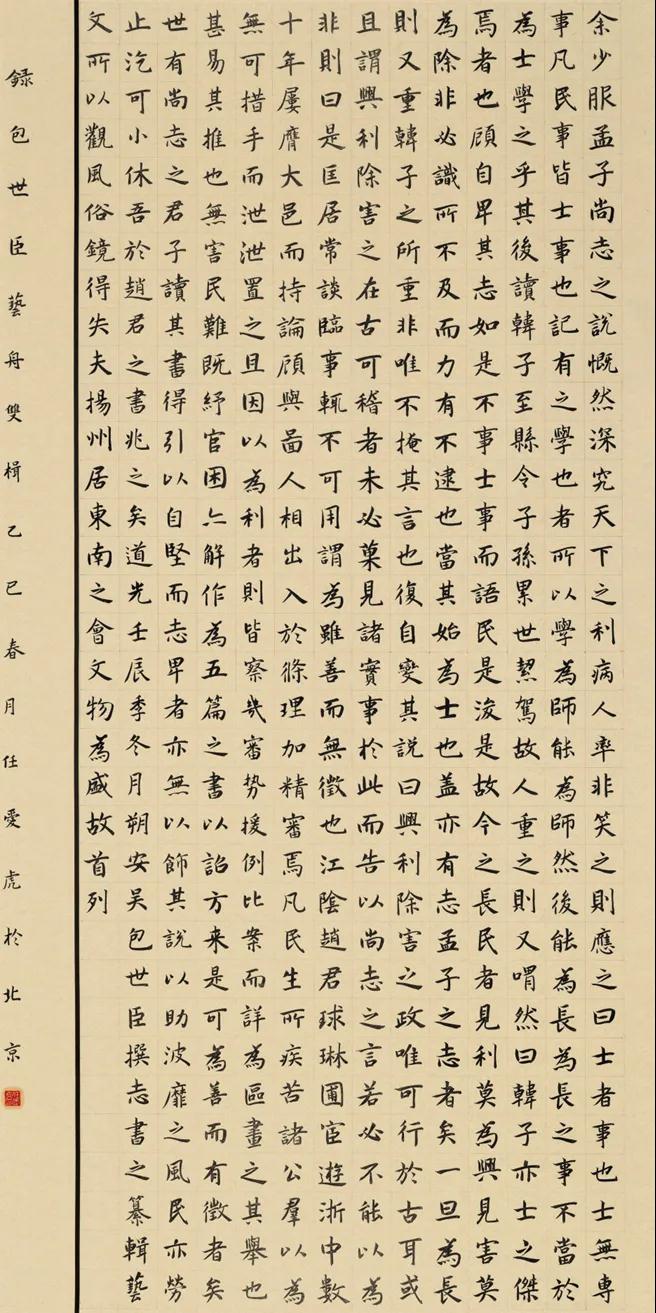 余少服孟子尚志之說慨然深究天下之利病人率非笑之則應之曰士者事也士無專
事凡民事皆士事也記有之學也者所以學為師能為師然後能為長為長之事不當於
為士學之乎其後讀韓子至縣令子孫累世絜駕故人重之則又喟然曰韓子亦士之傑
焉者也顧自卑其志如是不事士事而語民是浚是故今之長民者見利莫為興見害莫
為除非必識所不及而力有不逮也當其始為士也盖亦有志孟子之志者矣一旦為長
則又重韓子之所重非唯不掩其言也復自變其說曰興利除害之政唯可行於古耳或
且謂興利除害之在古可稽者未必菓見諸實事於此而告以尚志之言若必不能以為
非則曰是匡居常談臨事輒不可用謂為雖善而無徵也江陰趙君球琳圃宦遊浙中數
十年屢膺大邑而持論頎與啚人相出入於條理加精審焉凡民生所疾苦諸公羣以為
無可措手而泄泄置之且因以為利者則皆察幾審勢援例比案而詳為區畫之其舉也
甚易其推也無害民難既紓官困亦解作為五篇之書以詔方来是可為善而有徵者矣
世有尚志之君子讀其書得引以自堅而志卑者亦無以飾其說以助波靡之風民亦勞
止汔可小休吾於趙君之書兆之矣道光壬辰季冬月朔安吴包世臣撰志書之纂輯藝
文所以觀風俗鏡得失夫揚州居東南之會文物為盛故首列
録包世臣藝舟雙楫乙巳春月任愛虎於北京